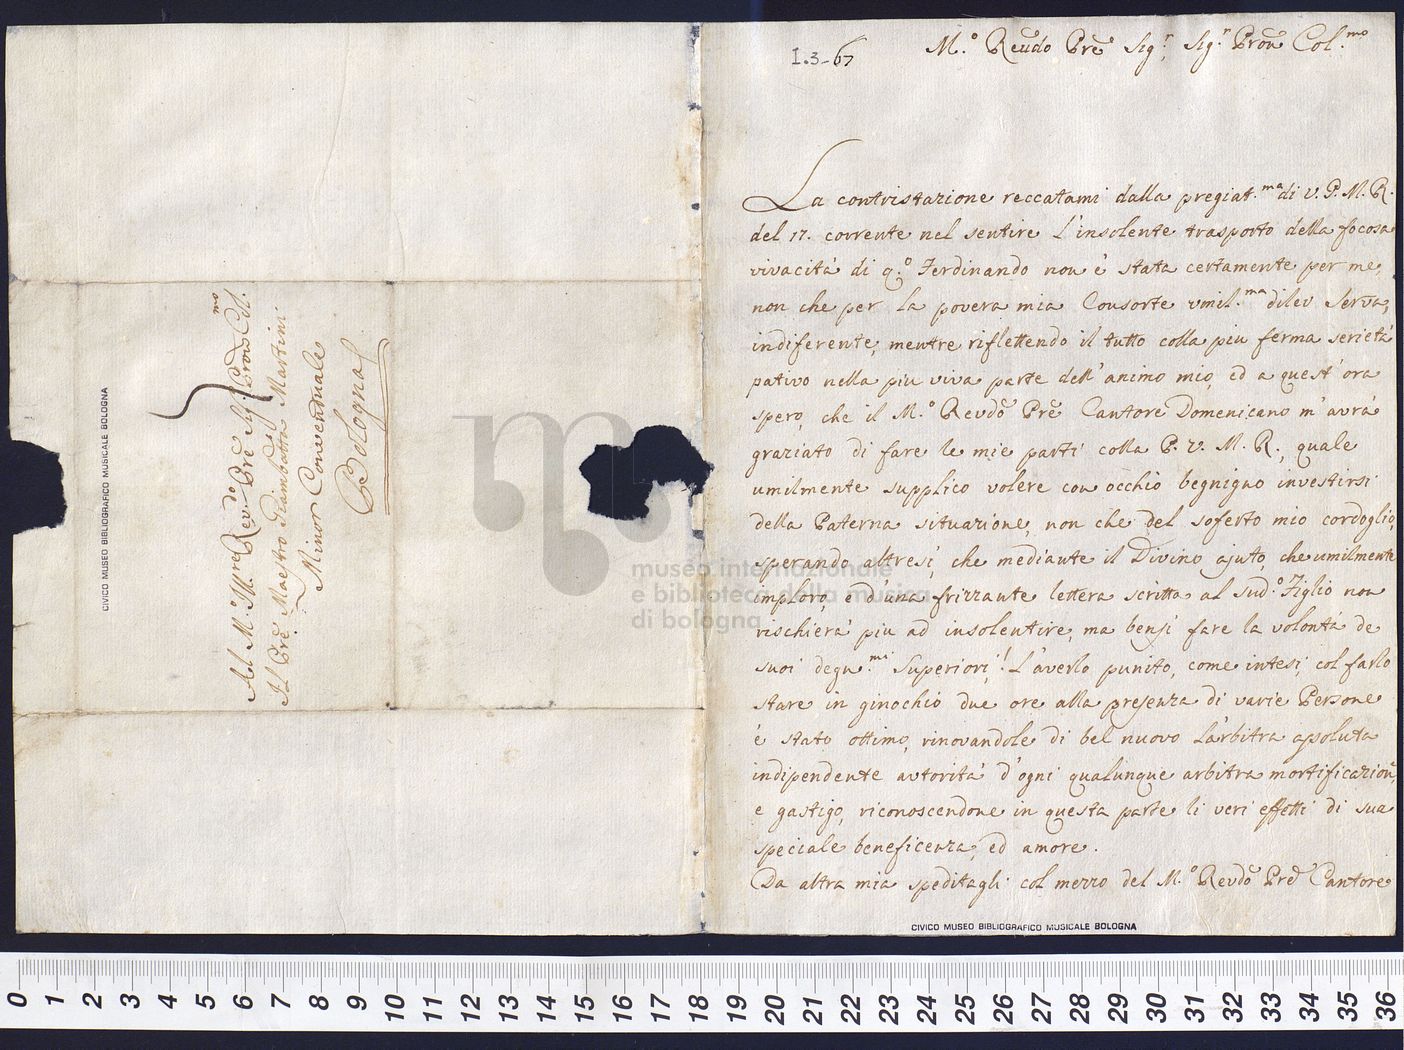 I.3-67
M.º Reudo Pre Sig.r, Sig.r Pron Col.mo
La contristazione reccatami dalla pregiat.ma di V. P. M. R.
del 17. corrente nel sentire l'insolente trasporto della focosa
vivacità di q.º Ferdinando non è stata certamente per me,
non che per la povera mia Consorte umil.ma di lei Serva,
indiferente, mentre riflettendo il tutto colla piu ferma serietà
pativo nella piu viva parte dell'animo mio, ed a quest'ora
spero, che il M.º Revdo Pre Cantore Domenicano m'avrà
graziato di fare le mie parti colla P. V. M. R., quale
umilmente supplico volere con occhio begnigno investirsi
della Paterna situazione, non che del soferto mio cordoglio,
sperando altresì, che mediante il Divino ajuto, che umilmente
imploro, e d'una frizzante lettera scritta al sud.º Figlio non
rischierà piu ad insolentire, ma bensì fare la volontà de
suoi degn.mi Superiori,! L'averlo punito, come intesi, col farlo
stare in ginochio due ore alla presenza di varie Persone
è stato ottimo, rinovandole di bel nuovo l'arbitra assoluta
indipendente autorità d'ogni qualunque arbitra mortificazion,
e gastigo, riconoscendone in questa parte li veri effetti di sua
speciale beneficenza, ed amore.
Da altra mia speditagli col mezzo del M.º Revdo Pre Cantore
CIVICO MUSEO BIBLIOGRAFICO MUSICALE BOLOGNA
Al M.º Revdo Pre Sig. Prone Col.mo
Il Pre Maestro Giambatta Martini
Minor Conventuale
Bologna
CIVICO MUSEO BIBLIOGRAFICO MUSICALE BOLOGNA
museo internazionale
e biblioteca della musica
di bologna
0 1 2 3 4 5 6 7 8 9 10 11 12 13 14 15 16 17 18 19 20 21 22 23 24 25 26 27 28 29 30 31 32 33 34 35 36